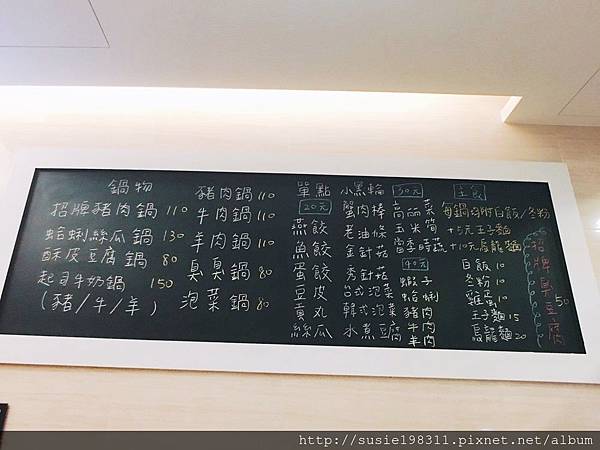 鍋物
招牌豬肉鍋 110
蛤蜊絲瓜鍋 130
酥皮豆腐鍋 80
起司牛奶鍋 150
(豬/牛/羊)
豬肉鍋 110
牛肉鍋 110
羊肉鍋 110
臭臭鍋 80
泡菜鍋 80
單點
20元
燕餃
魚餃
蛋餃
豆皮
貢丸
絲瓜
小黑輪
蟹肉棒
老油條
金針菇
秀針菇
台式泡菜
韓式泡菜
水煮豆腐
30元
高麗菜
玉米筍
當季時蔬
40元
蝦子
蛤蜊
豬肉
牛肉
羊肉
主食
每鍋均附白飯/冬粉
+5元王子麵
+10元烏龍麵
白飯 10
冬粉 10
雞蛋 10
王子麵 15
烏龍麵 20
招牌臭豆腐
50
http://susie198311.pixnet.net/album